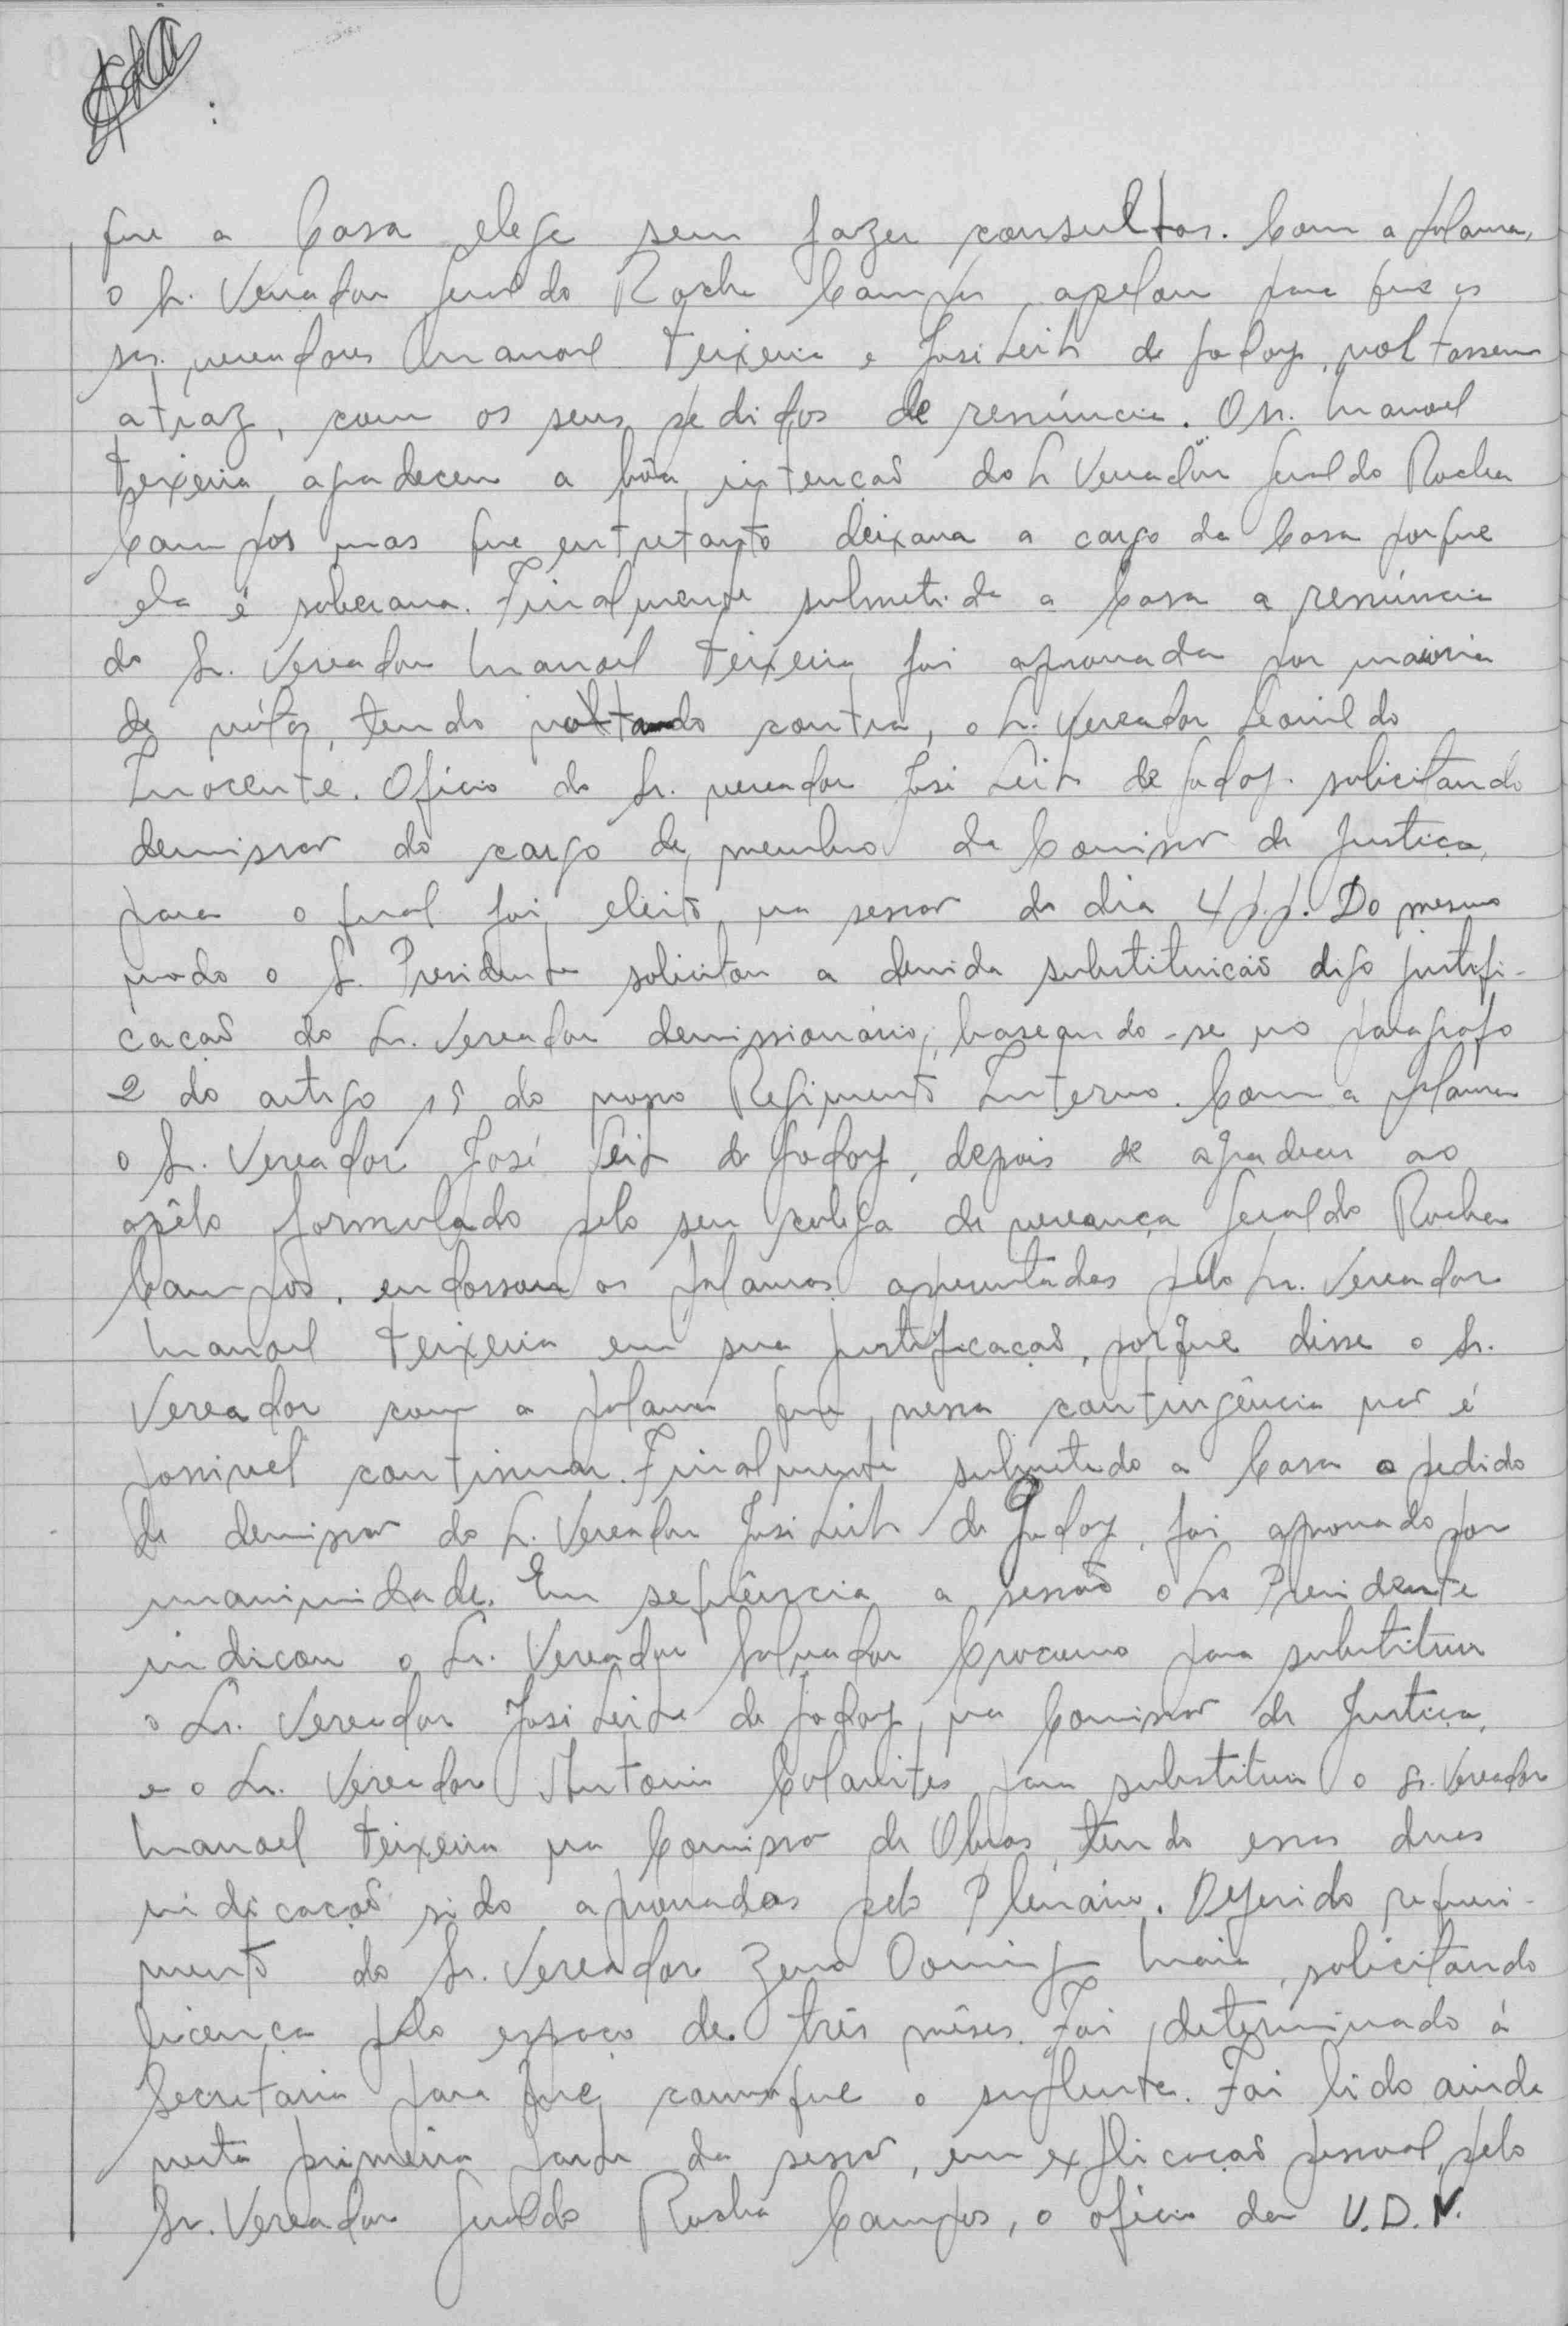 que a Casa elege sem fazer consultas. Com a palavra,
o Sr. Vereador Geraldo Rocha Campos, apelou para que os
srs. vereadores Manoel Teixeira e José Leite de Godoy, voltassem
atraz, com os seus pedidos de renúncia. O sr. Manoel
Teixeira, agradeceu a bôa intencaõ do Sr Vereador Geraldo Rocha
Campos mas que entretanto deixava a cargo da Casa porque
ela é soberana. Finalmente submetida a Casa a renúncia
do Sr. Vereador Manoel Teixeira foi aprovada por maioria
de vótos, tendo votado contra, o Sr. Vereador Leonildo
Inocente. Ofício do Sr. vereador José Leite de Godoy. solicitando
demissão do cargo de membro da Comissão de Justiça,
para o qual foi eleito na sessão do dia 4 p.p. Do mesmo
modo o Sr. Presidente solicitou a devida substituicaõ digo justifi-
cacaõ do Sr. Vereador demissionário, baseando-se no paragrafo
2 do artigo 15 do nosso Regimento Interno. Com a palavra
o Sr. Vereador José Leite de Godoy, depois de agradecer ao
apêlo formulado pelo seu colega de vereança Geraldo Rocha
Campos, endossou as palavras apresentadas pelo Sr. Vereador
Manoel Teixeira em sua justificacaõ, porque disse o Sr.
Vereador com a palavra que nessa contingência não é
possivel continuar. Finalmente submetido a Casa o pedido
de demissão do Sr. Vereador José Leite de Godoy, foi aprovado por
unanimidade. Em sequência a sessaõ o Sr Presidente
indicou o Sr. Vereador Salvador para substituir
o Sr. Vereador José Leite de Godoy, na Comissão de Justiça,
e o Sr. Vereador Antonio para substituir o Sr. Vereador
Manoel Teixeira na Comissão de Obras, tendo essas duas
indicacaõs sido aprovadas pelo Plenário. Deferido requeri-
mento do Sr. Vereador Maia, solicitando
licença pelo espaço de três mêses. Foi determinado á
Secretaria para que convoque o suplente. Foi lido ainda
nesta primeira parte da sessão, em explicacaõ pessoal, pelo
Sr. Vereador Geraldo Rocha Campos, o ofício da U.D.N.